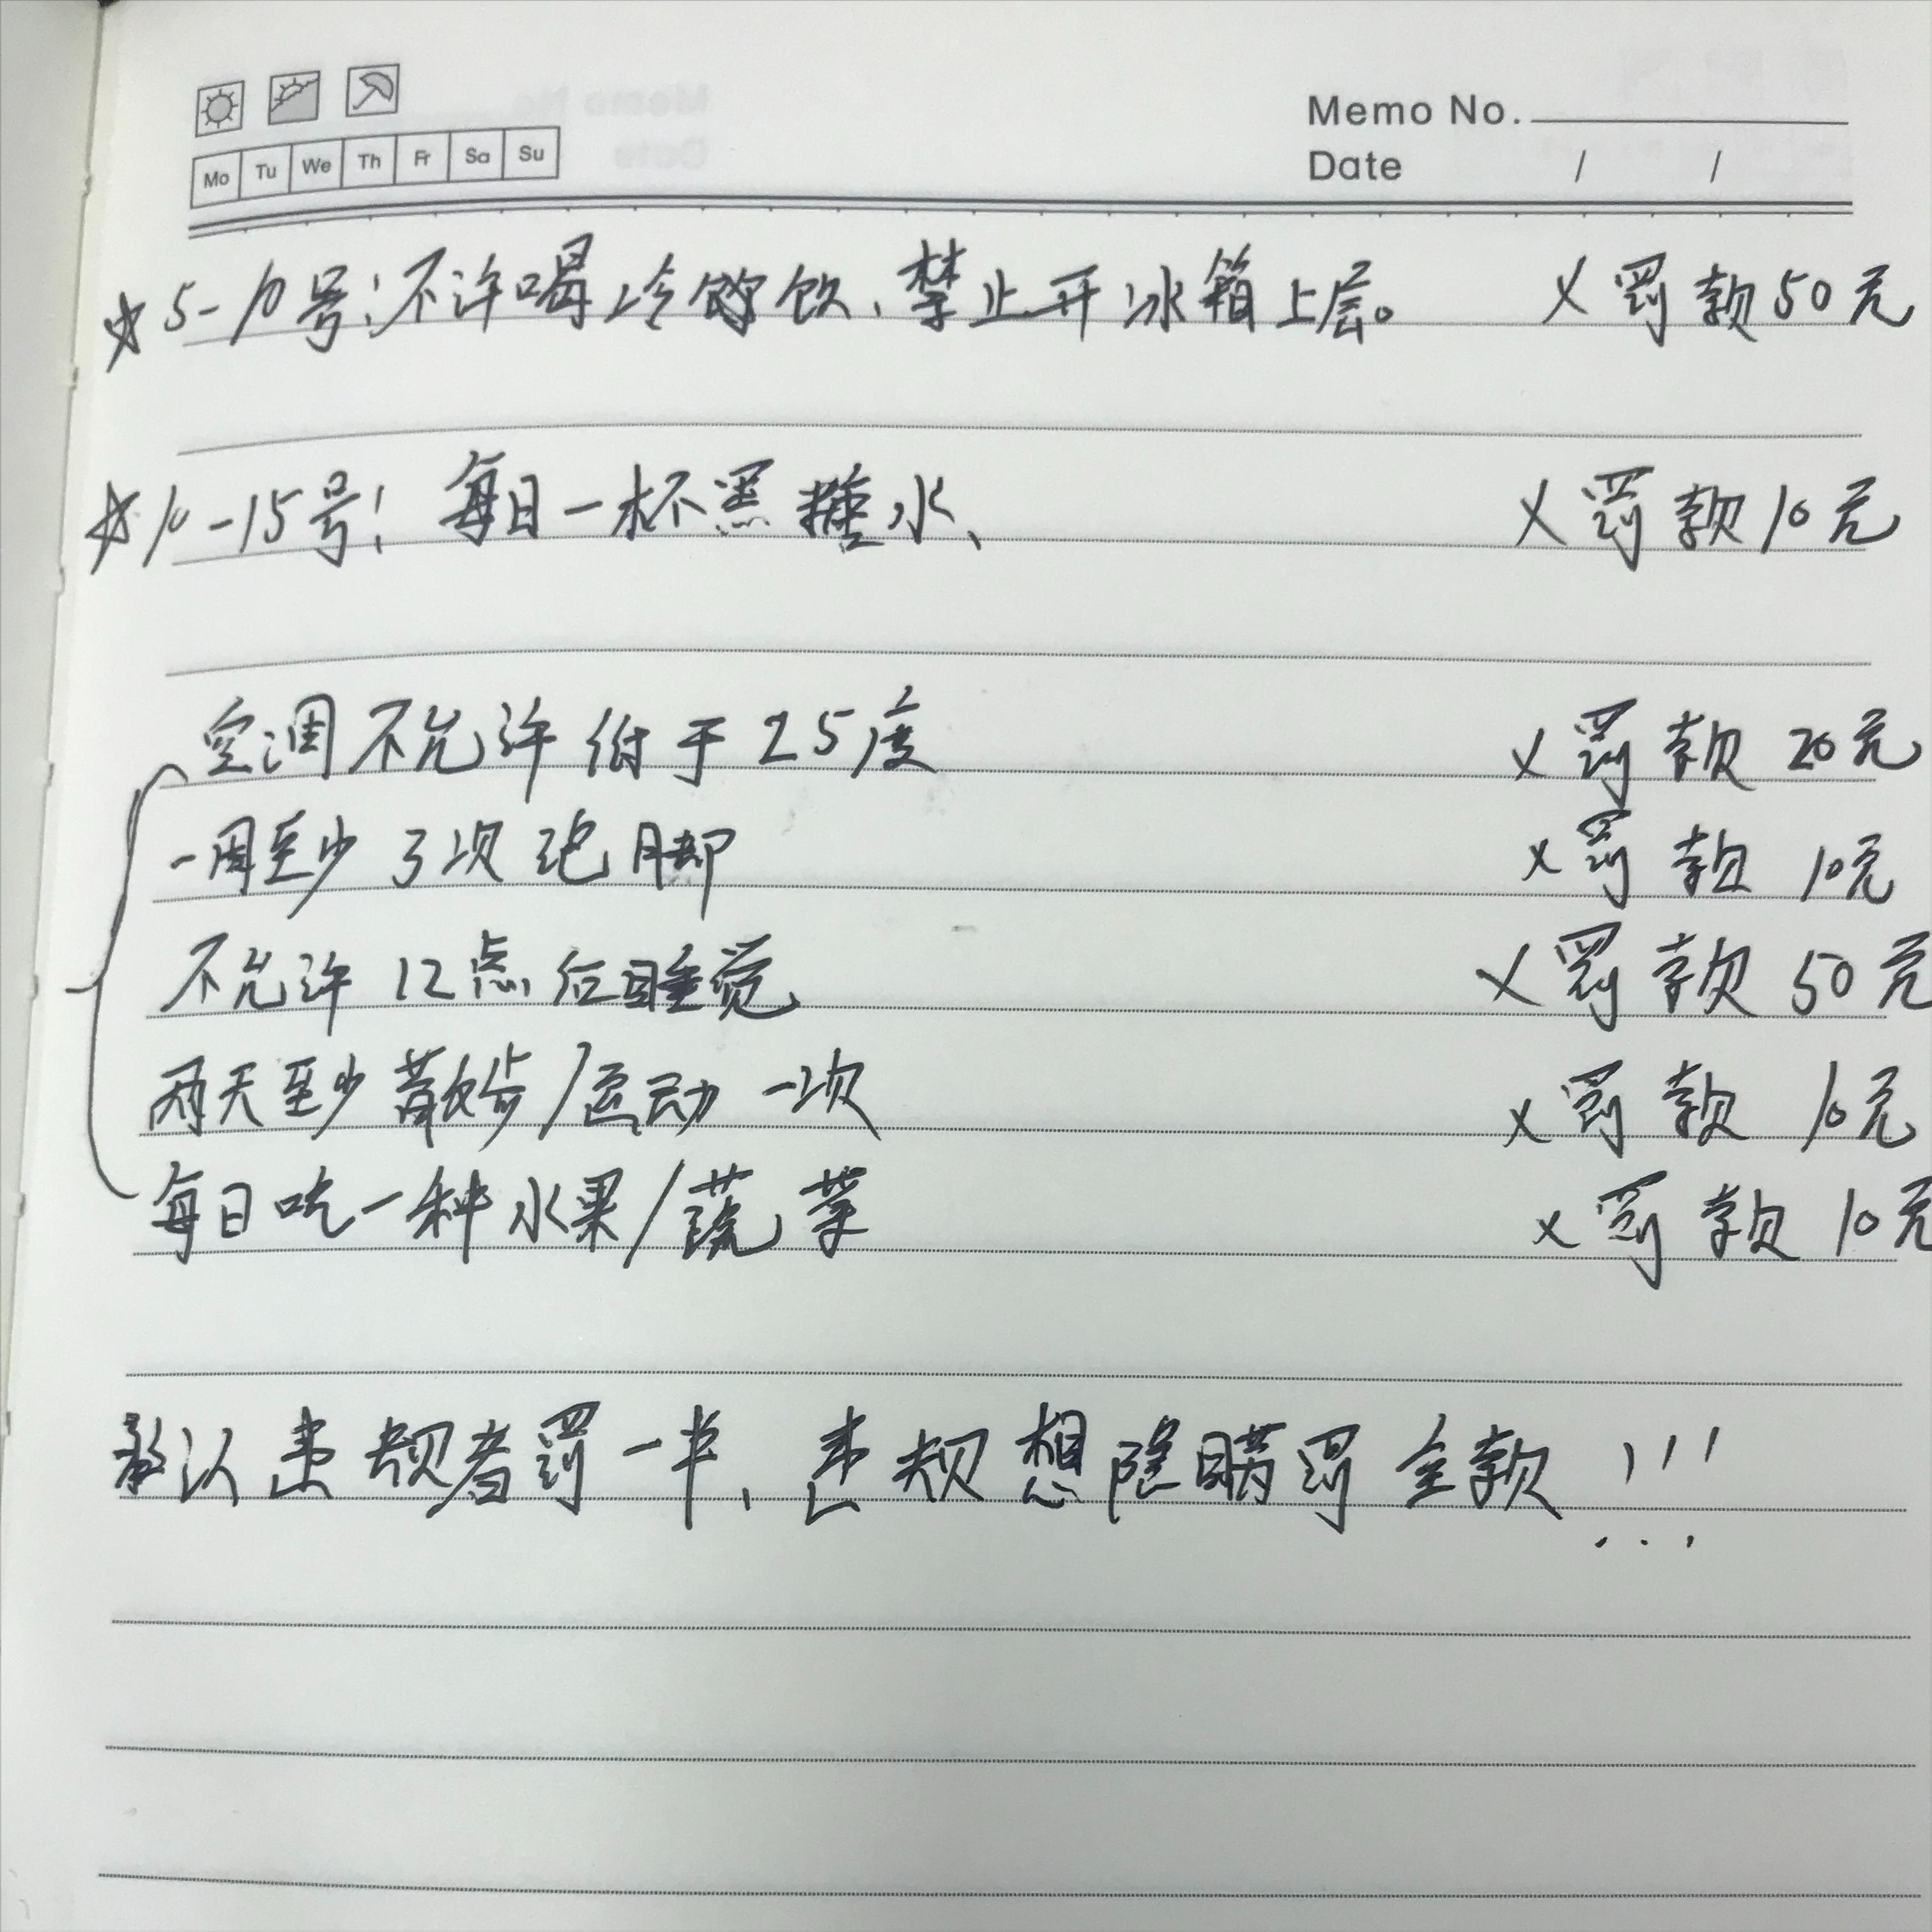 Memo No.
Mo Tu We Th Fr Sa Su
Date / /
☆5-10号:不许喝冷饮、禁止开冰箱上层。 ×罚款50元
☆10-15号: 每日一杯黑糖水、 ×罚款10元
空调不允许低于25度 ×罚款20元
一周至少3次泡脚 ×罚款10元
不允许12点后睡觉 ×罚款50元
两天至少散步/运动一次 ×罚款10元
每日吃一种水果/蔬菜 ×罚款10元
承认违规者罚一半、违规想隐瞒罚全款!!!